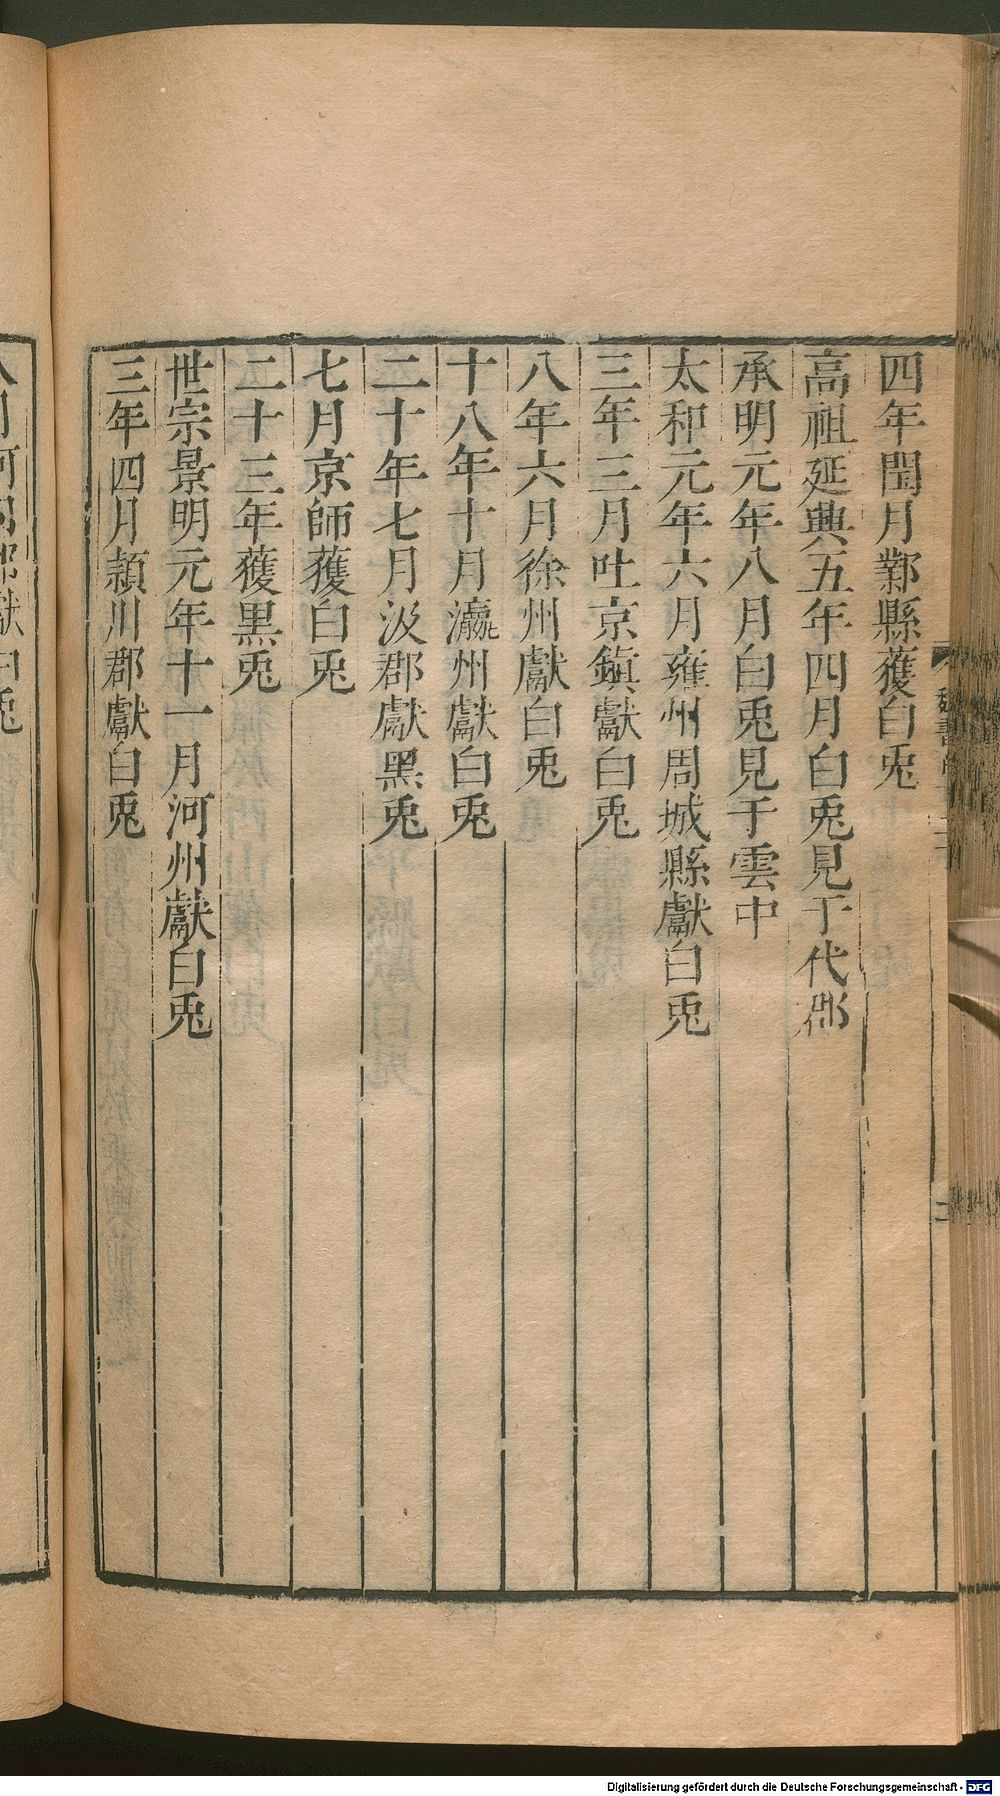 四年閏月鄴縣獲白兎
高祖延興五年四月白兎見于代郡
承明元年八月白兎見于雲中
太和元年六月雍州周城縣獻白兎
三年三月吐京鎮獻白兎
八年六月徐州獻白兎
十八年十月瀛州獻白兎
二十年七月汲郡獻黑兎
七月京師獲白兎
二十三年獲黑兎
世宗景明元年十一月河州獻白兎
三年四月潁川郡獻白兎
Digitalisierung gefördert durch die Deutsche Forschungsgemeinschaft - DFG